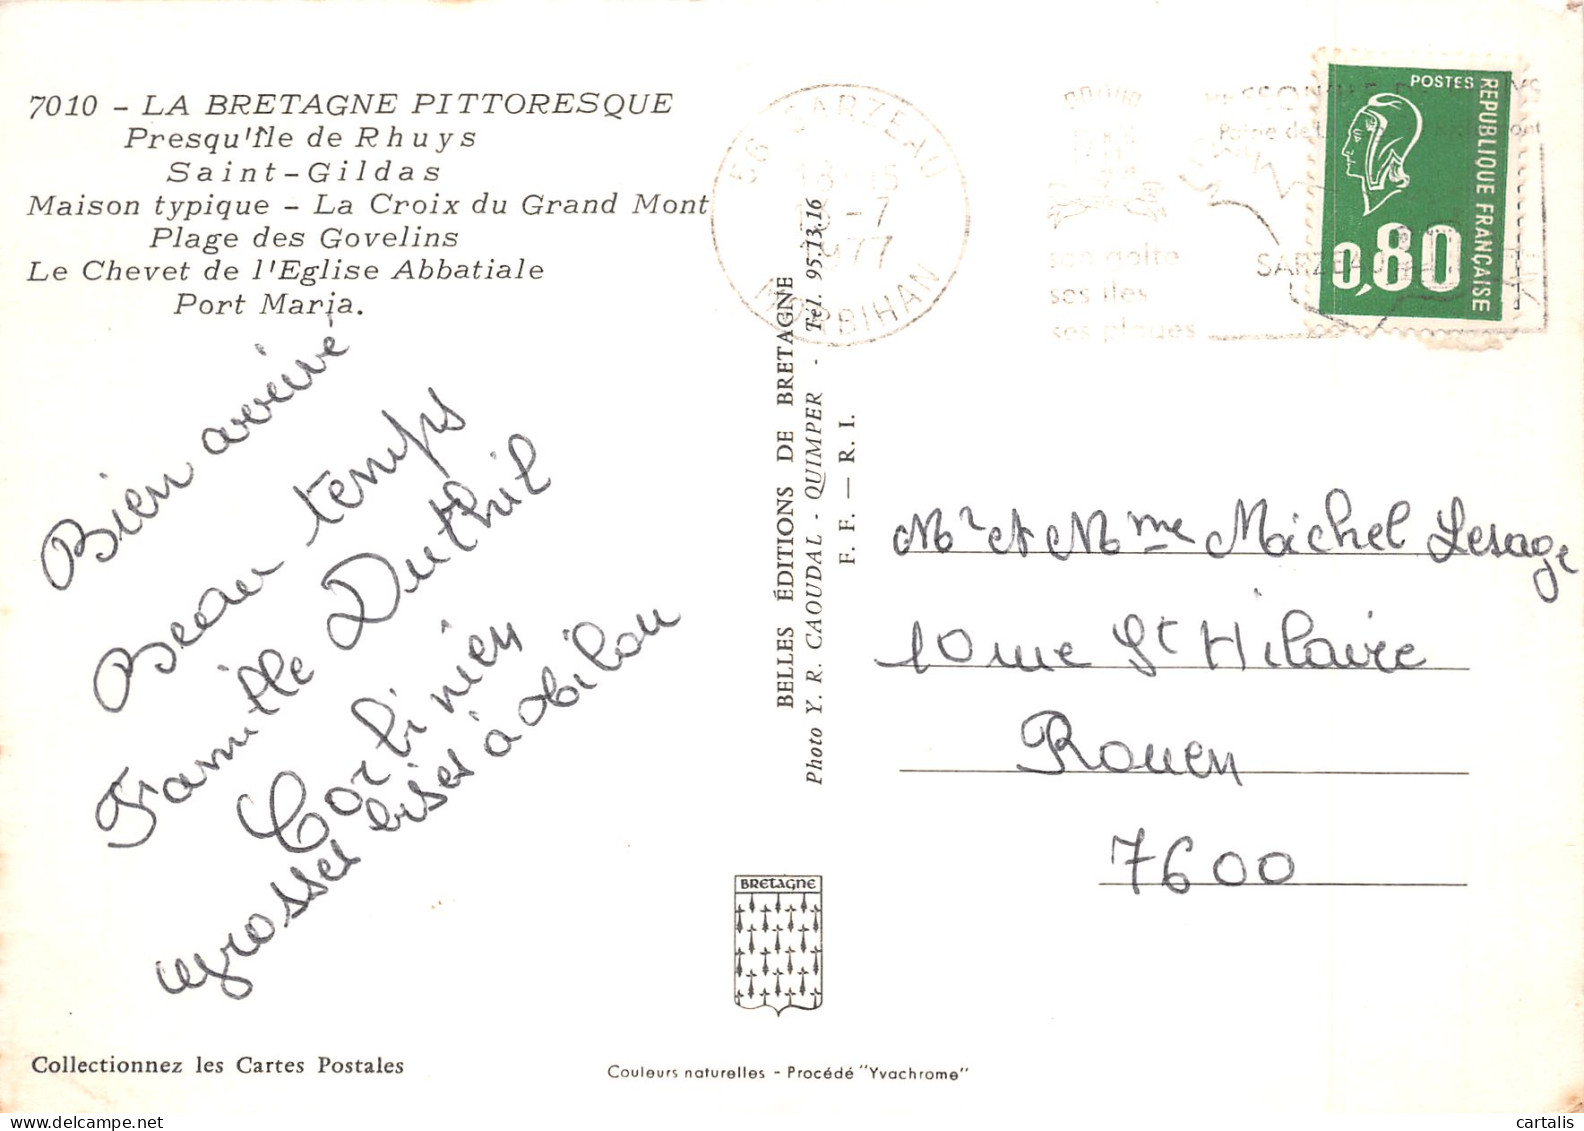 7010 - LA BRETAGNE PITTORESQUE
Presqu'Île de Rhuys
Saint-Gildas
Maison typique - La Croix du Grand Mont
Plage des Govelins
Le Chevet de l'Eglise Abbatiale
Port Maria.
Bien arrivé
Beau temps
Famille Duthil
Corbinien
grosses bises à
56 SARZEAU
18-15
-7
1977
MORBIHAN
son golfe
ses îles
ses plages
SARZEAU
POSTES
REPUBLIQUE FRANÇAISE
0,80
BELLES ÉDITIONS DE BRETAGNE
Photo Y. R. CAOUDAL - QUIMPER - Tél. 95.13.16
F. F. — R. I.
Mr et Mme Michel Lesage
10 rue St Hilaire
Rouen
7600
BRETAGNE
Collectionnez les Cartes Postales
Couleurs naturelles - Procédé "Yvachrome"
cartalis